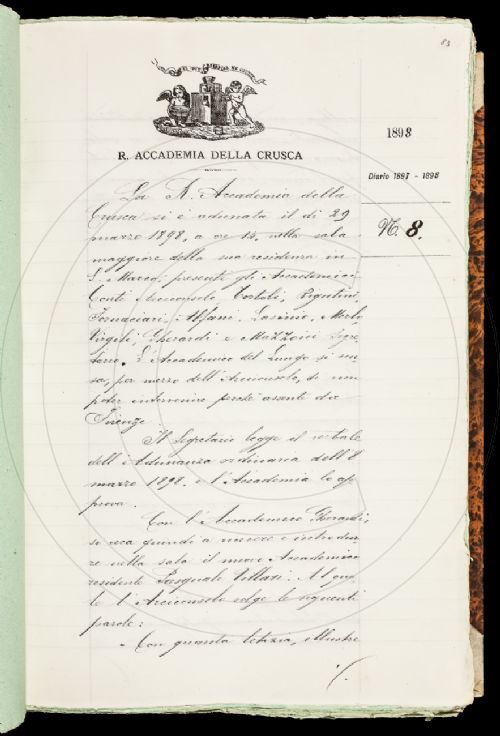 83
1898
R. ACCADEMIA DELLA CRUSCA
Diario 1897 - 1898
N. 8.
La R. Accademia della
Crusca si è adunata il dì 29
marzo 1898, a ore 13, nella sala
maggiore della sua residenza in
S. Marco; presenti gli Accademici
Conti Arciconsolo, Tortoli, Rigutini,
Fornaciari, Alfani, Lasinio, Merlo,
Virgili, Gherardi e Mazzoni Segre
tario. L'Accademico Del Lungo si scu
sa, per mezzo dell'Arciconsolo, di non
poter intervenire perchè assente da
Firenze.
Il Segretario legge il verbale
dell'Adunanza ordinaria dell'8
marzo 1898, e l'Accademia lo ap
prova.
Con l'Accademico Gherardi,
si reca quindi a ricevere e introdur
re nella sala il nuovo Accademico
residente Pasquale Villari. Al qua
le l'Arciconsolo volge le seguenti
parole:
" Con quanta letizia, illustre